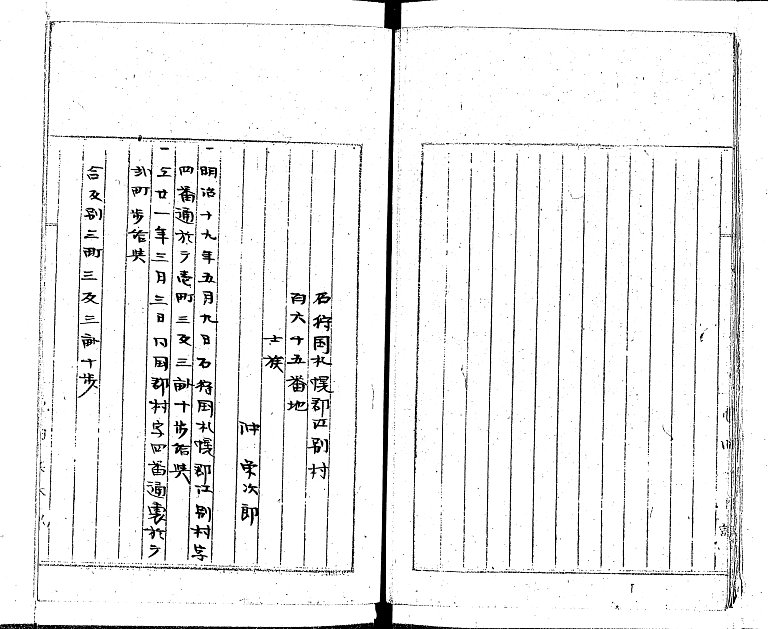 石狩国札幌郡江別村
百六十五番地
士族
仲栄次郎
一明治十九年五月九日石狩国札幌郡江別村字
四番通於テ壱町三反三畝十歩給与
一仝廿一年三月三日同国郡村字四番通裏於テ
弐町歩給与
合反別三町三反三畝十歩